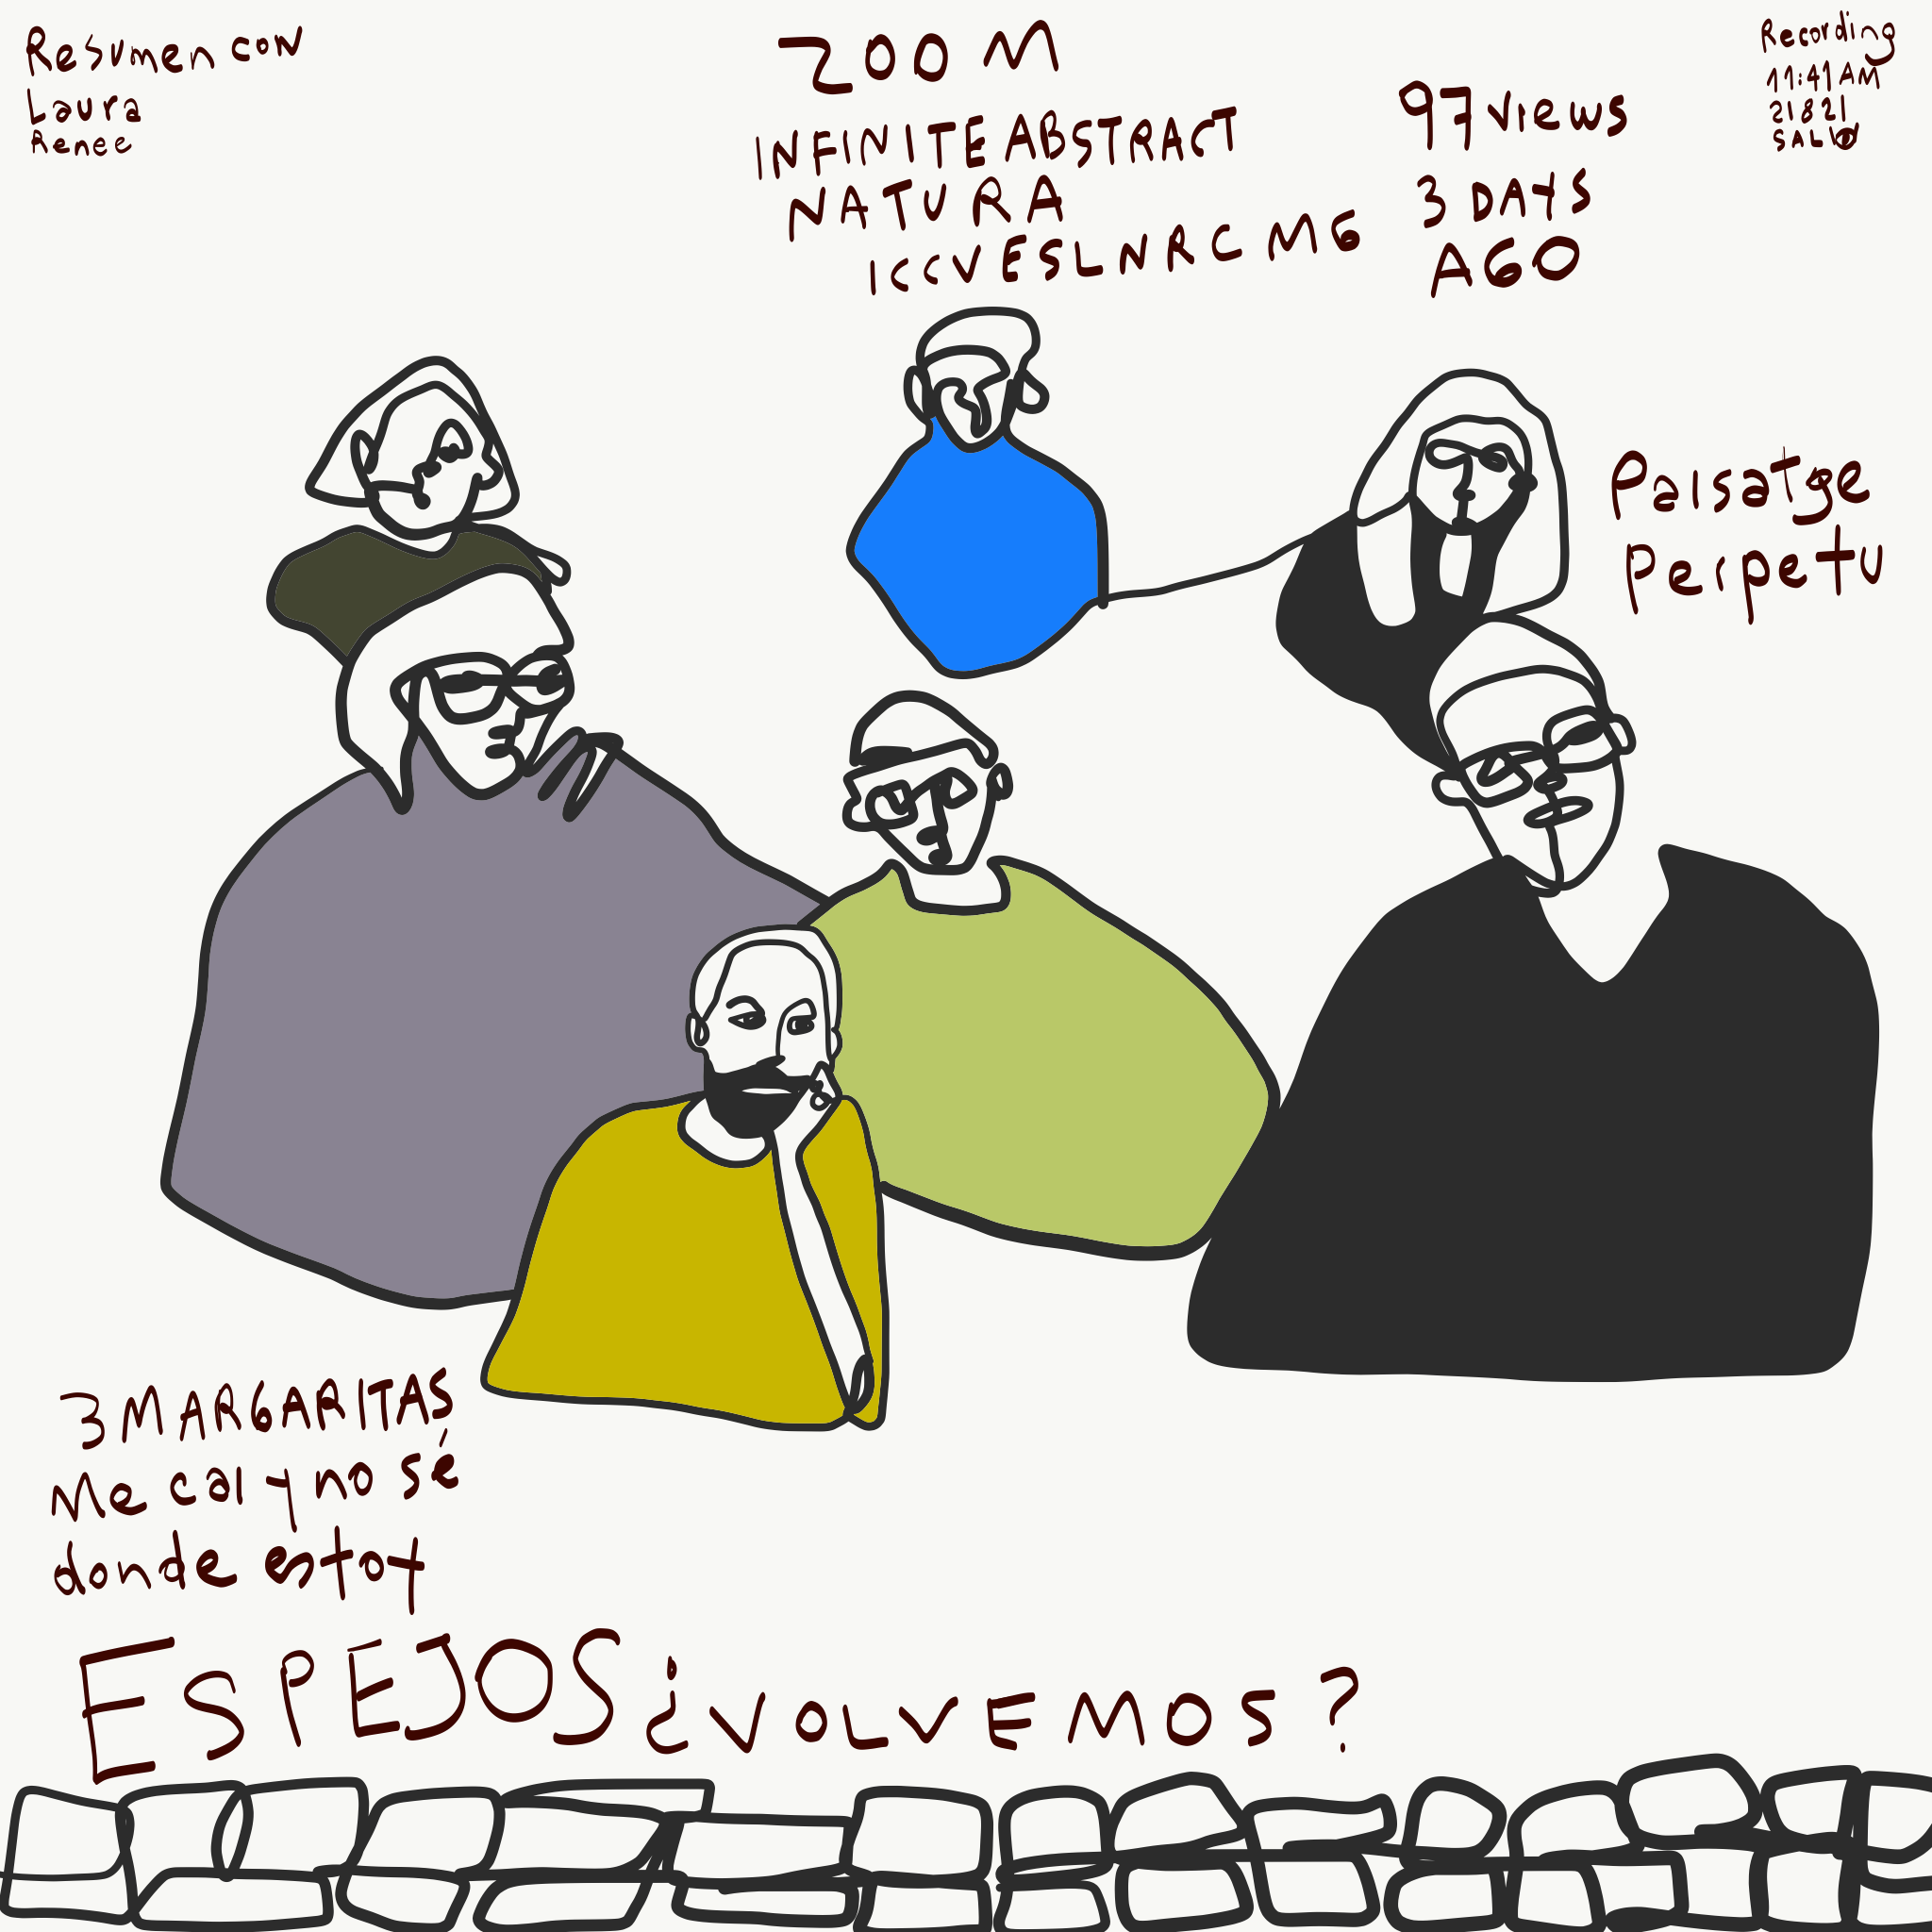 Resumen con
Laura
Renee
ZOOM
INFINITE ABSTRACT
NATURA
97 views
3 DAYS
AGO
Recording
11:41 AM
21821
Paisatge
Perpetu
3 MARGARITAS
Me caí y no sé
donde estoy
ESPEJOS ¿VOLVEMOS?